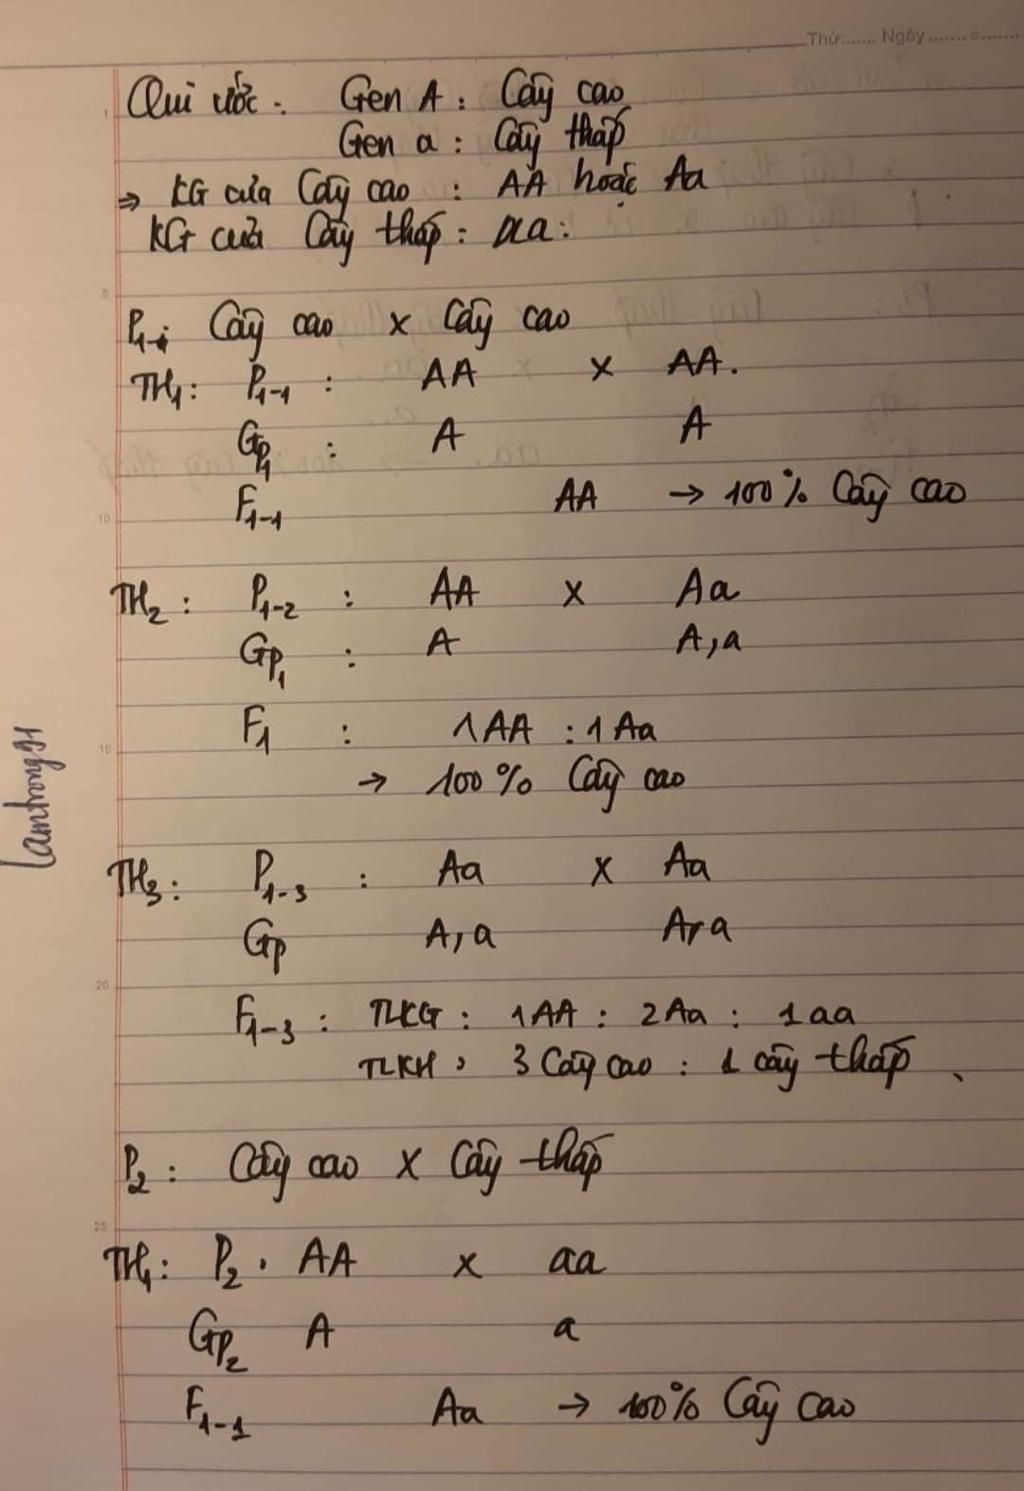 Thứ....... Ngày...............
Qui ước. Gen A : Cây cao
Gen a : Cây thấp
⇒ KG của Cây cao : AA hoặc Aa
KG của Cây thấp : aa.
P1: Cây cao x Cây cao
TH1: P1-1 : AA x AA.
GP1 : A A
F1-1 AA → 100% Cây cao
10
TH2 : P1-2 : AA x Aa
GP1 : A A,a
F1 : 1AA : 1Aa
15
→ 100% Cây cao
lamtrong91
TH3: P1-3 : Aa x Aa
GP A,a A,a
20
F1-3 : TLKG : 1AA : 2Aa : 1aa
TLKH : 3 Cây cao : 1 cây thấp.
P2 : Cây cao x Cây thấp
25
TH1: P2 . AA x aa
GP2 A a
F1-1 Aa → 100% Cây cao